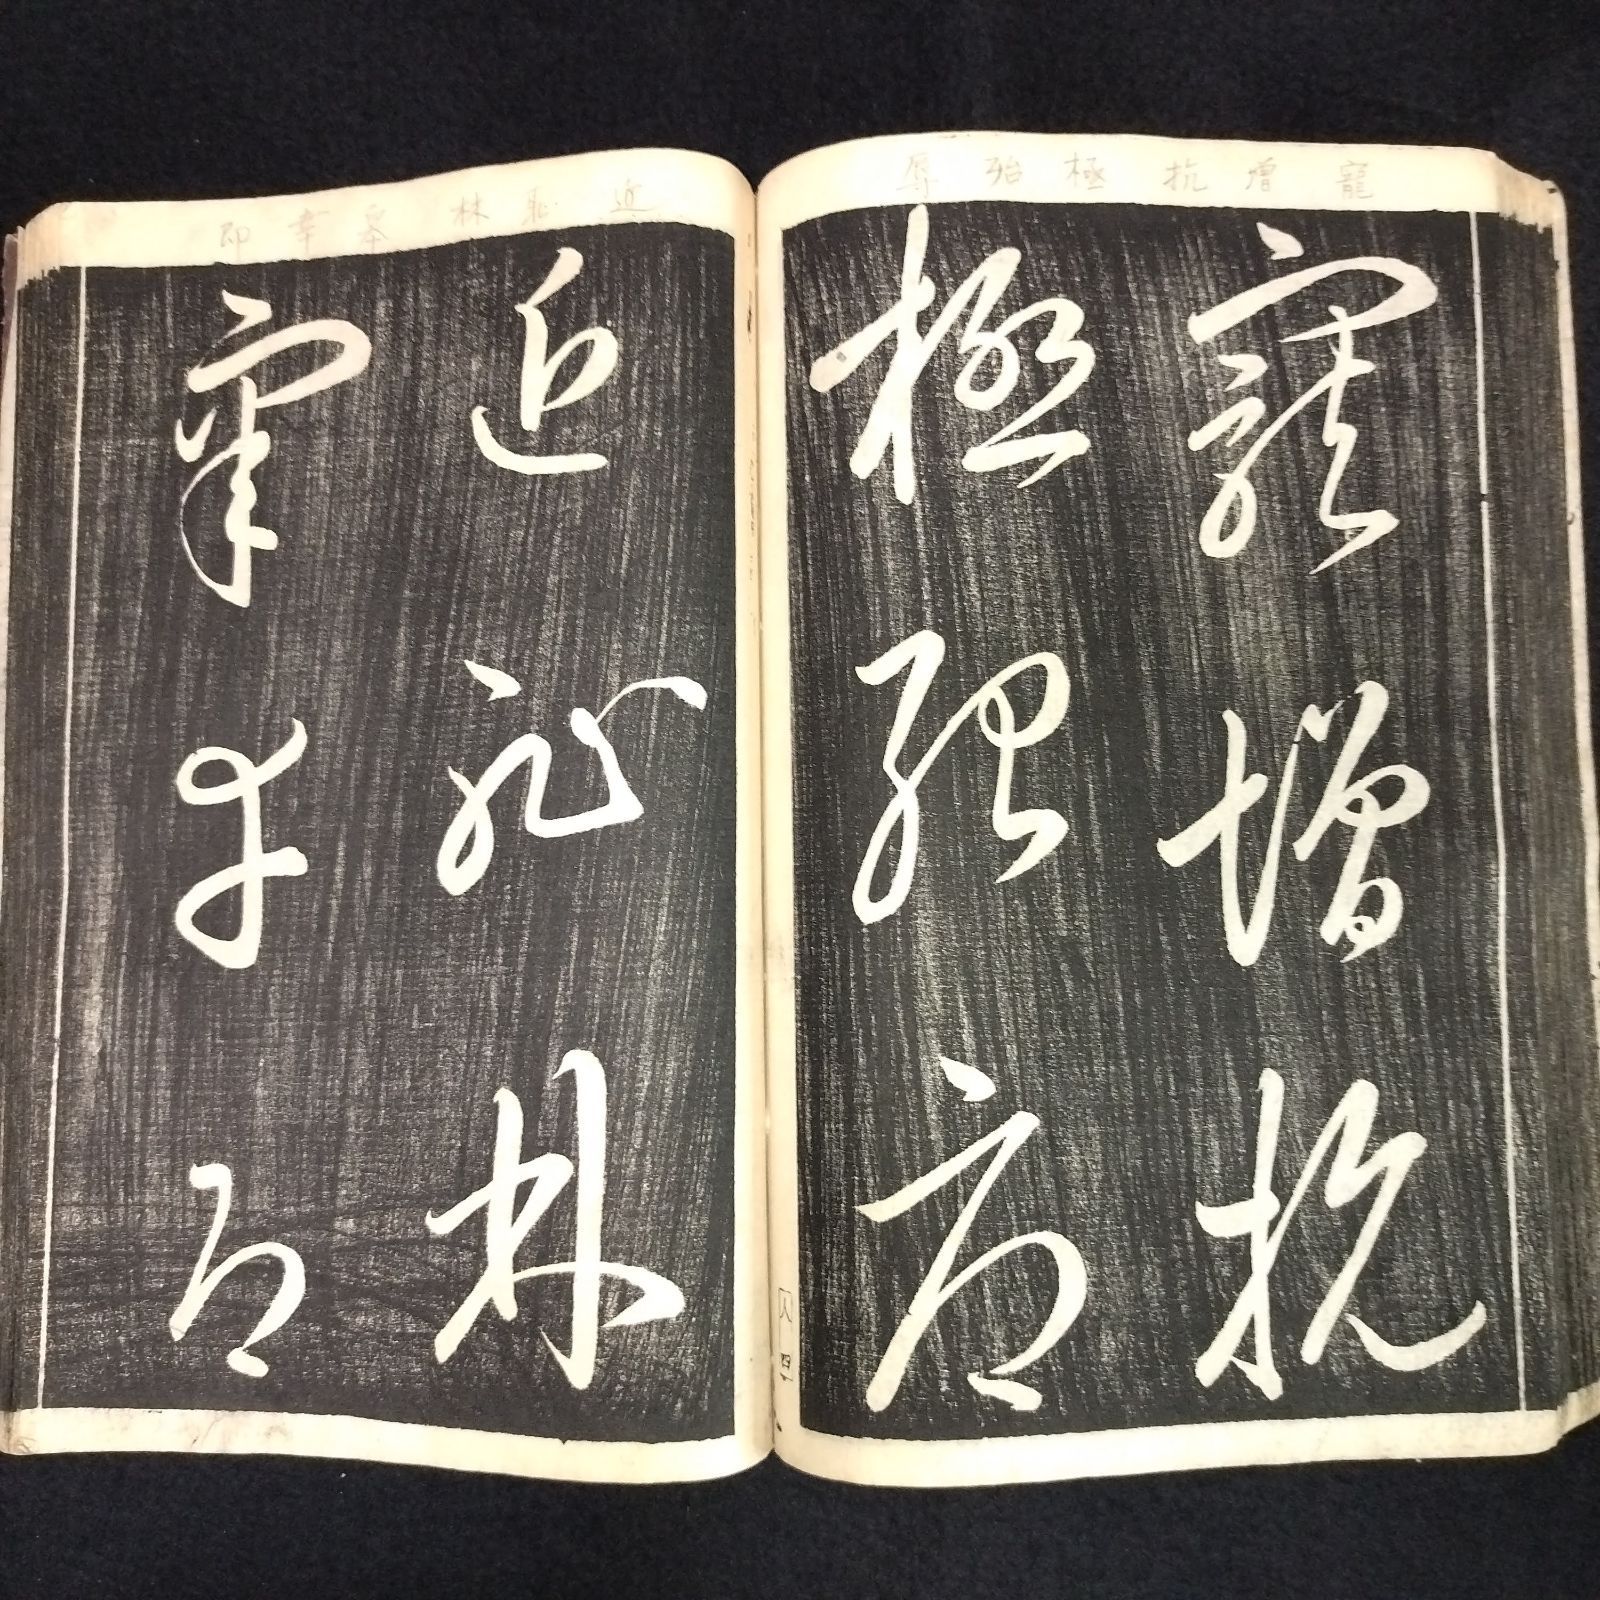 寵 增 抗 極 殆 辱
寵增抗
極殆辱
近 恥 林 皋 幸 即
近恥林
皋幸即
四